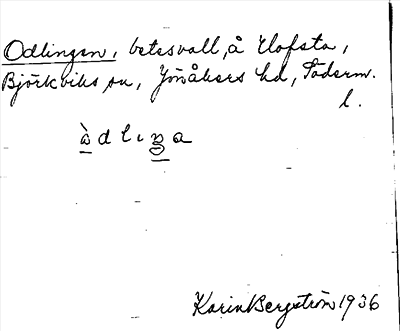 Odlingen, betesvall, å Elofsta,
Björkviks sn, Jönåkers hd, Söderm.
l.
àdliŋa
Karin Bergström 1936